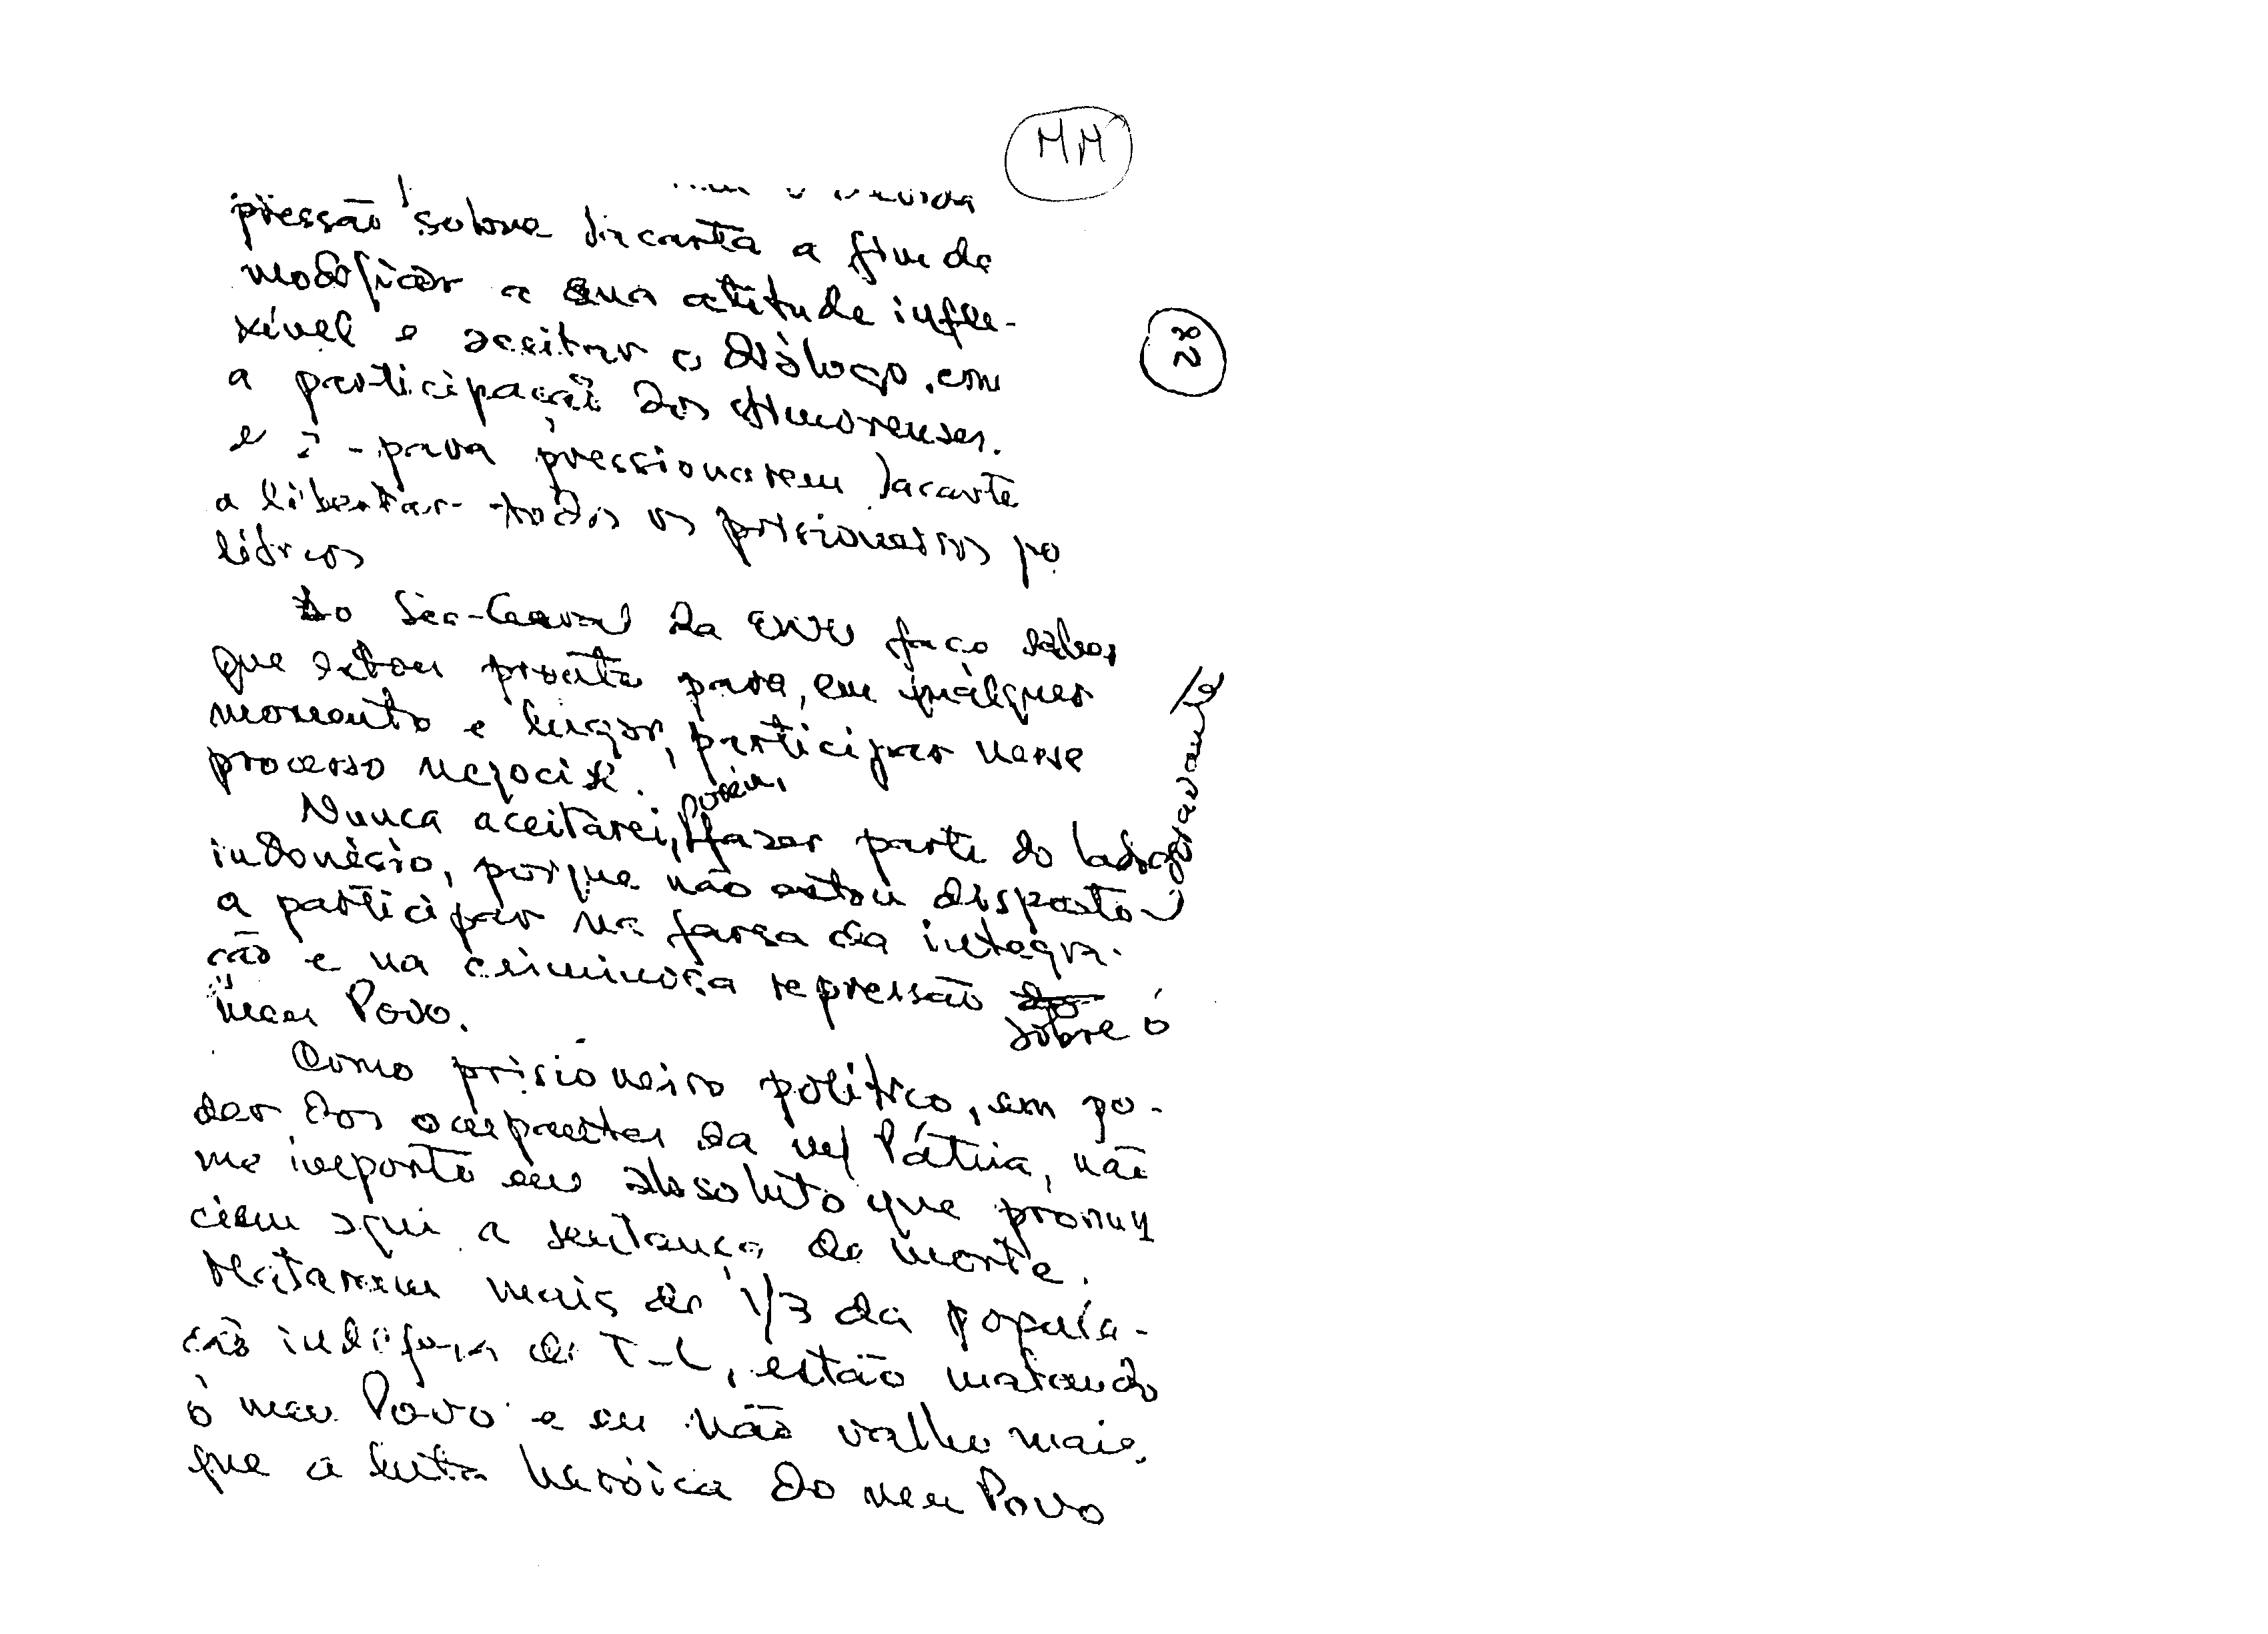 MM
devida
pressão sobre Jacarta a fim de
modificar a sua atitude infle-
xível e aceitar o diálogo, com
a participação dos timorenses.
e 2º - para pressionarem Jacarta
a libertar todos os prisioneiros po
líticos
28
Ao Sec-Geral da ONU faço saber
que estou pronto para, em qualquer
momento e lugar, participar nesse
processo negocial.
Nunca aceitarei, porém, fazer parte do lado
indonésio, porque não estou disposto
a participar na farsa da integra-
ção e na criminosa repressão sobre o
meu Povo.
Como prisioneiro político, em po-
der dos ocupantes da m/ Pátria, não
me importo em absoluto que pronun
ciem aqui a sentença de morte.
Mataram mais de 1/3 da popula-
ção indefesa de T-L, estão matando
o meu Povo e eu não valho mais
que a luta heróica do meu Povo